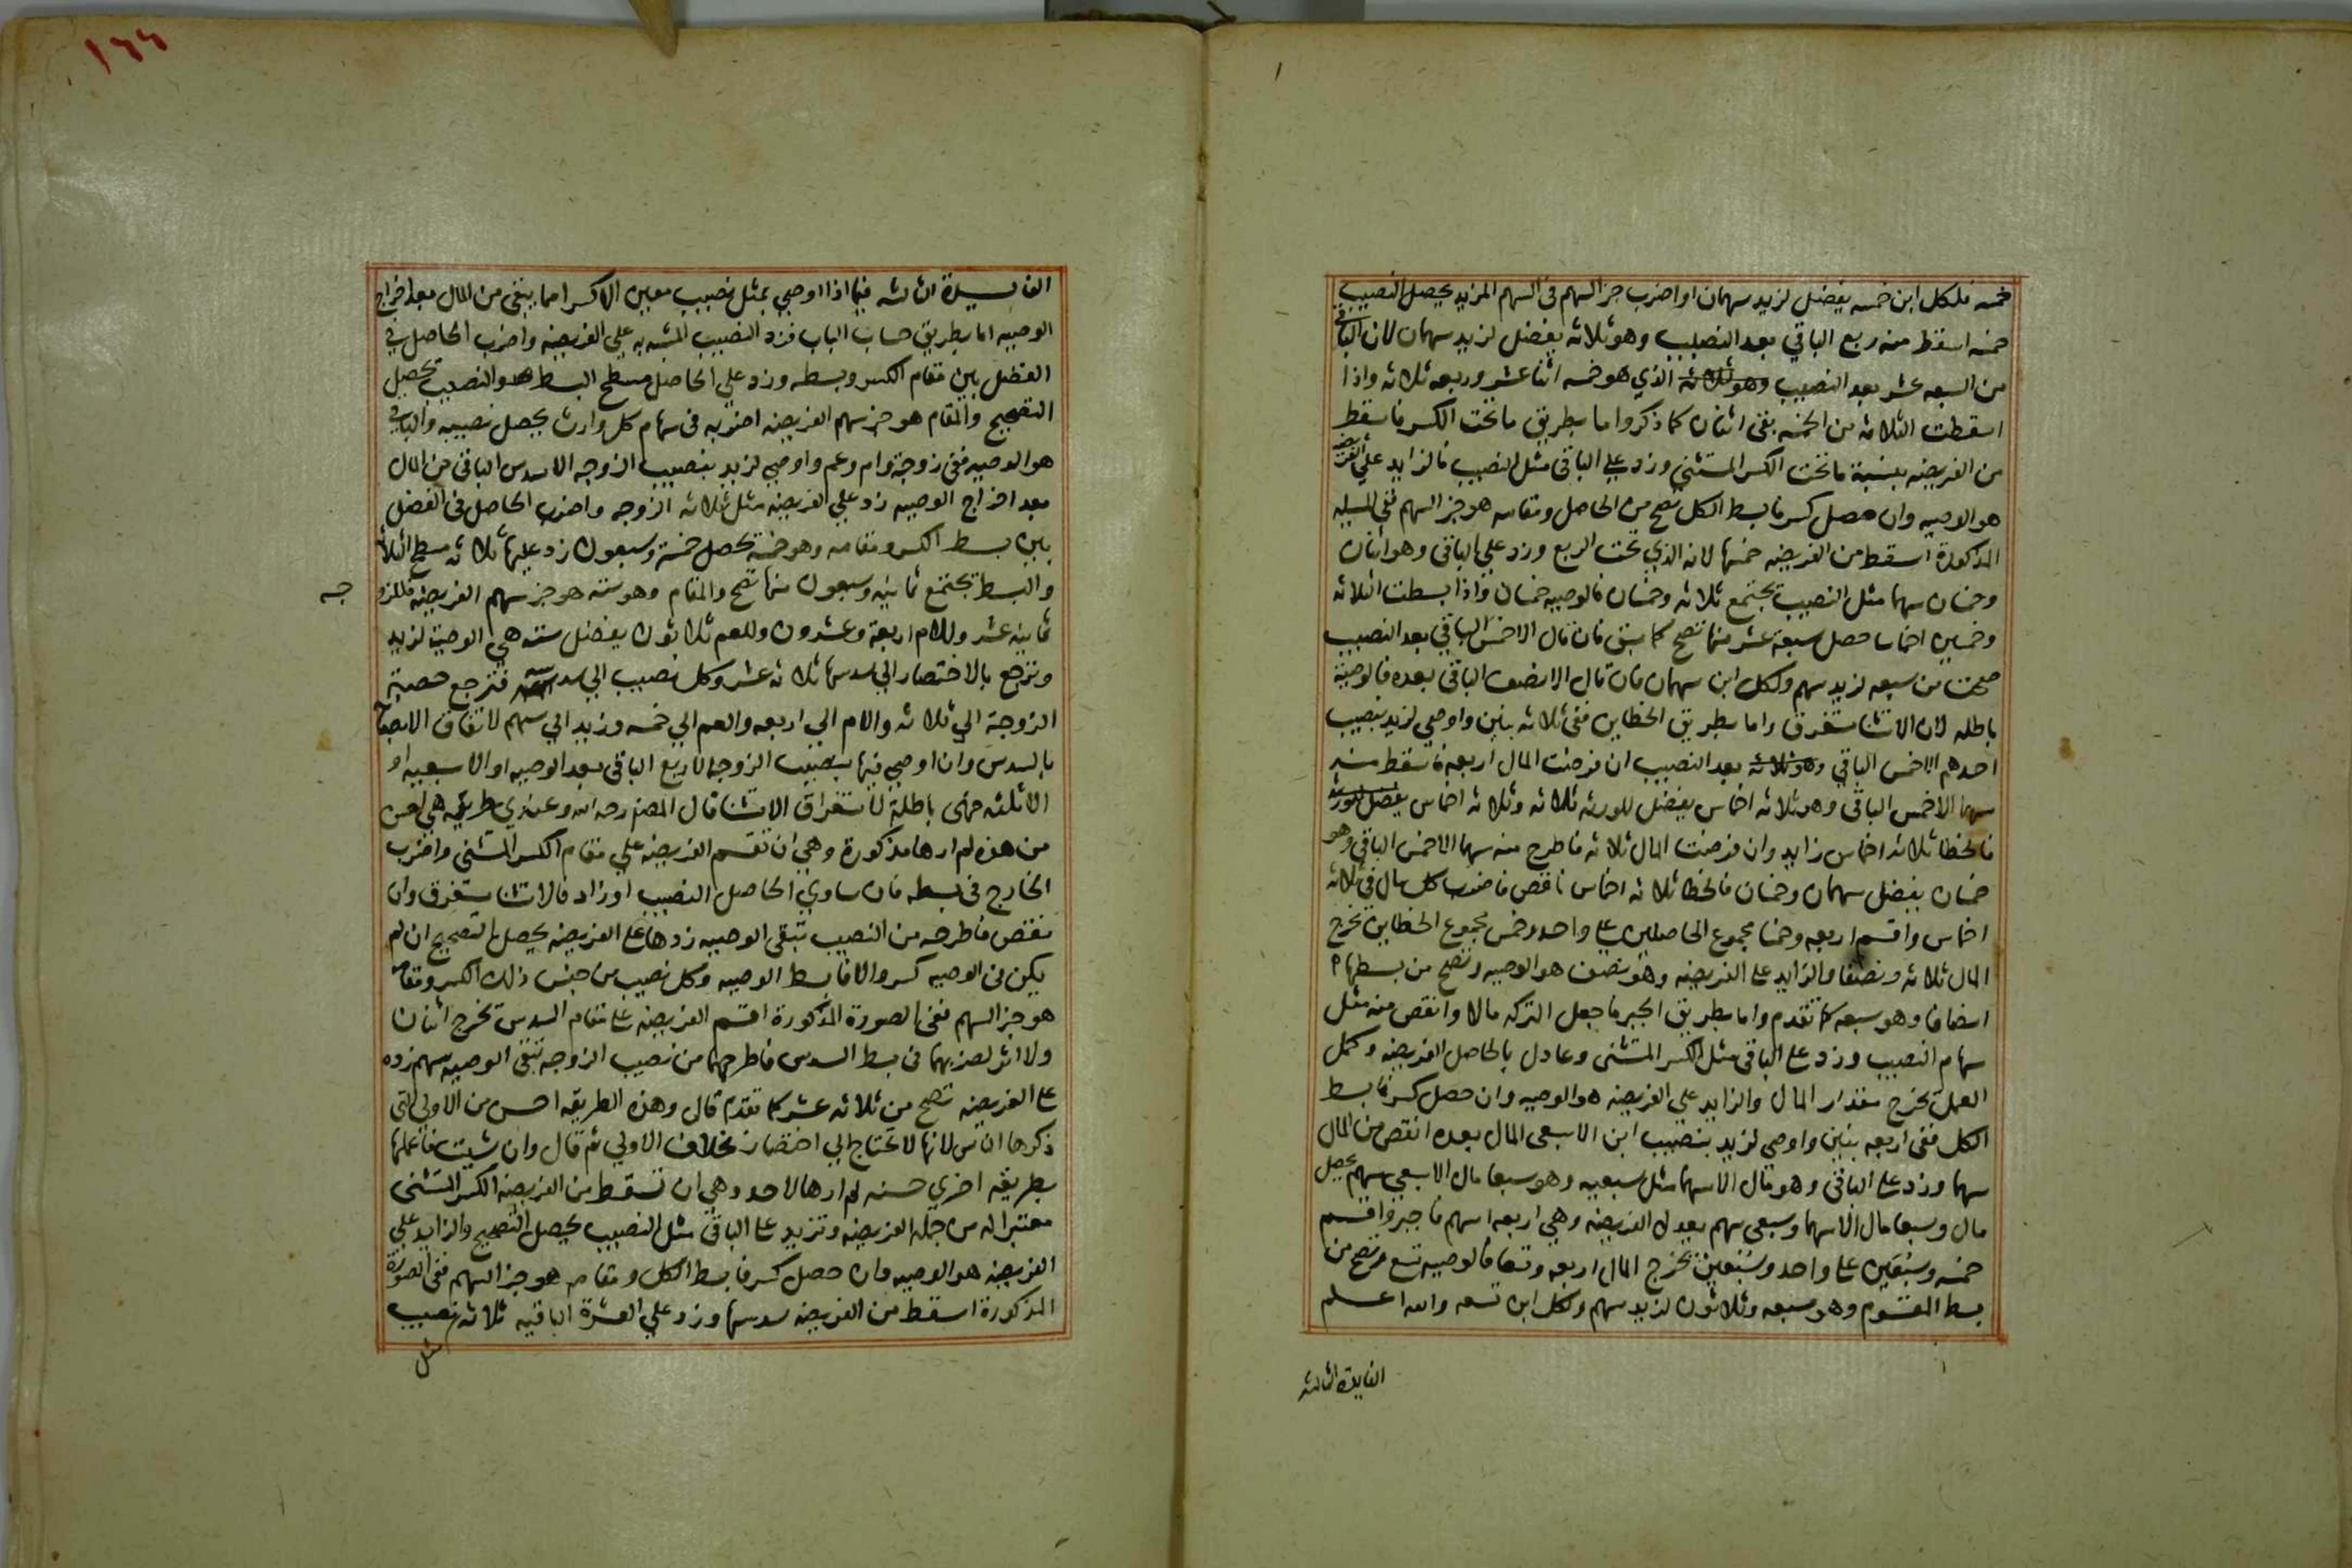 خمسه فلكل ابن خمسه يفضل لزيد سهمان او اضرب جز السهم في السهم المزيد يحصل النصيب
خمسه اسقط منه ربع الباقي بعد النصيب وهو ثلاثه يفضل لزيد سهمان لان الباقي
من السبعه عشر بعد النصيب وهو ثلاثه الذي هو خمسه اثنا عشر وربعه ثلاثه واذا
اسقطت الثلاثه من الخمسه بقى اثنان كما ذكر واما بطريق ما تحت الكسر فاسقط
من الفريضه بنسبة ما تحت الكسر المستثنى وزد على الباقى مثل النصيب فالزايد على الفريضه
هو الوصيه وان حصل كسر فابسط الكل تصح من الحاصل ومقامه هو جز السهم ففى المسيله
المذكورة اسقط من الفريضه خمسها لانه الذي تحت الربع وزد على الباقى وهو اثنان
وخمسان سهما مثل النصيب يجتمع ثلاثه وخمسان فالوصيه خمسان واذا بسطت الثلاثه
وخمسين اخماسا حصل سبعة عشر منها تصح كما سبق فان قال الا خمس الباقي بعد النصيب
صحت من سبعه لزيد سهم ولكل ابن سهمان فان قال الا نصف الباقى بعده فالوصية
باطله لان الاستثنا مستغرق واما بطريق الخطاين ففى ثلاثه بنين واوصى لزيد بنصيب
احدهم الا خمس الباقي وهو ثلاثه بعد النصيب ان فرضت المال اربعة فاسقط منه
سهما الا خمس الباقى وهو ثلاثه اخماس يفضل للورثه ثلاثه وثلاثه اخماس يفضل للورثه
فالخطا ثلاثه اخماس زايد وان فرضت المال ثلاثه فاطرح منه سهما الا خمس الباقي وهو
خمسان يفضل سهمان وخمسان فالخطا ثلاثه اخماس ناقص فاضرب كل مال فى ثلاثه
اخماس واقسم اربعه وخمسا مجموع الحاصلين على واحد وخمس مجموع الخطاين يخرج
المال ثلاثه ونصفا والزايد على الفريضه وهو نصف هو الوصيه وتصح من بسطها
انصافا وهو سبعه كما تقدم واما بطريق الجبر فاجعل التركه مالا وانقص منه مثل
سهام النصيب وزد على الباقى مثل الكسر المستثنى وعادل بالحاصل الفريضه وكمل
العمل يخرج مقدار المال والزايد على الفريضه هو الوصيه وان حصل كسر فابسط
الكل ففى اربعه بنين واوصى لزيد بنصيب ابن الا سبعى المال بعده انقص من المال
سهما وزد على الباقى وهو مال الا سهما مثل سبعيه وهو سبعا مال الا سبعى سهم يحصل
مال وسبعا مال الا سهما وسبعى سهم يعدل الفريضه وهي اربعه اسهم فاجبر واقسم
خمسه وسبعين على واحد وسبعين يخرج المال اربعه وتسعا فالوصيه تسع وتصح من
بسط المقسوم وهو سبعه وثلاثون لزيد سهم ولكل ابن تسعه والله اعلم
الفايدة الثالثه
١٦٦
الفايدة الثالثه فيما اذا اوصي بمثل نصيب معين الا كسرا مما يبقى من المال بعد اخراج
الوصيه اما بطريق حساب الباب فزد النصيب المشبه به على الفريضه واضرب الحاصل في
الفضل بين مقام الكسر وبسطه وزد على الحاصل مسطح البسط والنصيب تحصيل
التصحيح والمقام هو جز سهم الفريضه اضربه فى سهام كل وارث يحصل نصيبه والباقي
هو الوصيه ففى زوجة وام وعم واوصى لزيد بنصيب الزوجه الا سدس الباقى من المال
بعد اخراج الوصيه زد على الفريضه مثل ثلاثه الزوجه واضرب الحاصل فى الفضل
بين بسط الكسر ومقامه وهو خمسة يحصل خمسة وسبعون زد عليها ثلاثه مسطح الثلاثه
والبسط يجتمع ثمانيه وسبعون منها تصح والمقام وهو سته هو جز سهم الفريضه فللزو
جه
ثمانيه عشر وللام اربعة وعشرون وللعم ثلاثون يفضل سته هي الوصية لزيد
وترجع بالاختصار الى سدسها ثلاثه عشر وكل نصيب الى سدسه فترجع حصة
الزوجة الى ثلاثه والام الى اربعه والعم الى خمسه وزيد الى سهم لاتفاق الانصبا
بالسدس وان اوصي فيها بنصيب الزوجه الا ربع الباقى بعد الوصيه او الا سبعيه او
الا ثلثه فهى باطلة لاستغراق الاستثنا قال المصنف رحمه الله وعندي طريقه هي احسن
من هذه لم ارها مذكورة وهي ان تقسم الفريضه على مقام الكسر المستثنى واضرب
الخارج فى بسطه فان ساوي الحاصل النصيب او زاد فالاستثنا مستغرق وان
نقص فاطرحه من النصيب تبقى الوصيه زدها على الفريضه يحصل التصحيح ان لم
يكن فى الوصيه كسر والا فابسط الوصيه وكل نصيب من جنس ذلك الكسر ومقامه
هو جز السهم ففى الصورة المذكورة اقسم الفريضه على مقام السدس يخرج اثنان
ولا اثر لضربهما فى بسط السدس فاطرحهما من نصيب الزوجه تبقى الوصيه سهم زده
على الفريضه تصح من ثلاثه عشر كما تقدم قال وهذه الطريقه احسن من الاولى التى
ذكرها الناس لانها لا تحتاج الى اختصار بخلاف الاولى ثم قال وان شيت فاعملها
بطريقه اخري حسنه لم ارها لاحد وهي ان تسقط من الفريضه الكسر المستثنى
معتبرا له من جملة الفريضه وتزيد على الباقى مثل النصيب يحصل التصحيح والزايد على
الفريضه هو الوصيه وان حصل كسر فابسط الكل ومقامه هو جز السهم ففى الصورة
المذكورة اسقط من الفريضه سدسها وزد على العشرة الباقيه ثلاثه نصيب
مثل